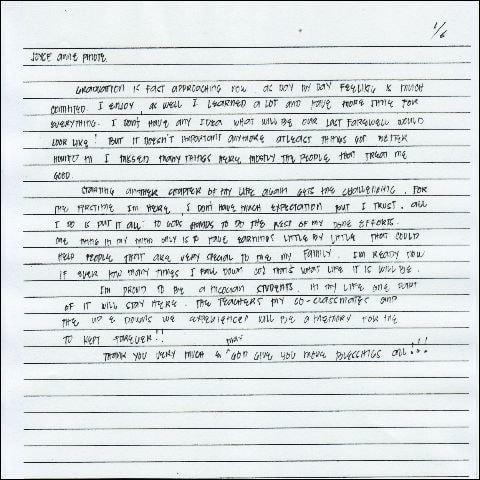 1/6
JOYCE ANNE
GRADUATION IS FAST APPROACHING NOW. AS DAY BY DAY FEELING IS MUCH
EXCITED. I ENJOY AS WELL I LEARNED A LOT AND HAVE MORE TIME FOR
EVERYTHING. I DON'T HAVE ANY IDEA WHAT WILL BE OUR LAST FAREWELL WOULD
LOOK LIKE! BUT IT DOESN'T IMPORTANT ANYMORE ATLEAST THINGS GOT BETTER
I MISSED MANY THINGS HERE, MOSTLY THE PEOPLE THAT TREAT ME
GOOD.
STARTING ANOTHER CHAPTER OF MY LIFE AGAIN GETS THE CHALLENGING. FOR
THE FIRSTIME I'M HERE, I DON'T HAVE MUCH EXPECTATION BUT I TRUST. ALL
I DO IS PUT IT ALL TO GODS HANDS TO DO THE REST OF MY DONE EFFORTS.
ONE THING IN MY MIND ONLY IS TO HAVE EARNINGS LITTLE BY LITTLE THAT COULD
HELP PEOPLE THAT ARE VERY SPECIAL TO ME MY FAMILY. I'M READY NOW
IF EVER HOW MANY THINGS I FALL DOWN THAT'S WHAT LIFE IT IS WILL BE.
I'M PROUD TO BE A STUDENTS. IN MY LIFE ONE PART
OF IT WILL STAY HERE. THE TEACHERS MY CO-CLASSMATES AND
THE UP & DOWNS WE EXPERIENCED WILL BE A MEMORY FOR ME
TO KEPT FOREVER!!
THANK YOU VERY MUCH & MAY GOD GIVE YOU MORE BLESSINGS ALL!!!